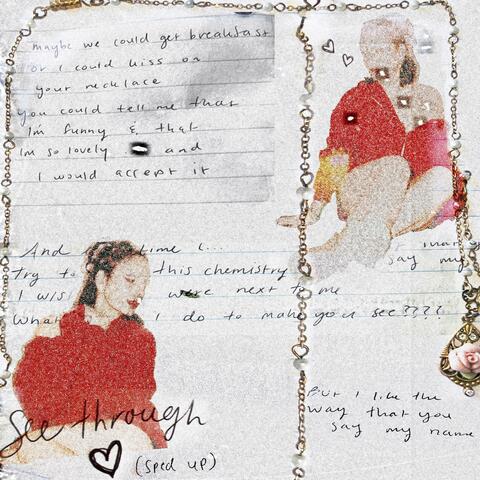 maybe we could get breakfast
or I could kiss on
your necklace
you could tell me that
I'm funny & that
I'm so lovely and
I would accept it
And time I...
try to this chemistry
say my
I were next to me
I do to make you see????
But I like the
way that you
say my name
see through
(sped up)